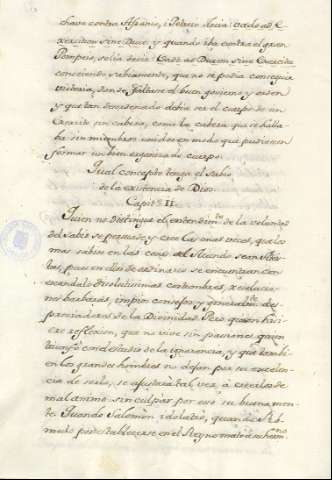 chava contra Afranio, i Petreio decia: Vado ad E-
xercitum sine Duce y quando iba contra el gran
Pompeio, solia decir: Vado ad Ducem sine Exercitu
conociendo sabiamente, que no se podia conseguir
victoria, donde faltase el buen govierno y orden
y que tan desordenado debia ser el cuerpo de un
Exercito sin cabeza, como la cabeza que se halla-
ba sin miembros unidos en modo que pudiesen
formar un bien organizado cuerpo.
Qual concepto tenga el Sabio
de la existencia de Dios.
Capit. II.
Quien no distingue el entendim.to de la voluntad
del Sabio se persuade, y cree las mas veces, que los
mas sabios en las cosas del Mundo sean Atheis-
tas, pues en ellos de ordinario se encuentran con
escandalo disolutisimas costumbres, execrables
no barbaras, impios consejos y generalm.te des-
preciadores de la Divinidad. Pero quien hici-
ere reflexion, que no vive sin pasiones quien
triunfó con el estudio de la ignorancia, y que tambi-
en los grandes hombres no dejan por su excelen-
cia de serlo, se ajustaria tal vez à creerlos de
mal animo sin culpar por esso su buena men-
te. Quando Salomòn idolatrò, quando Ró-
mulo por establecerse en el Reyno matò a su herm.no